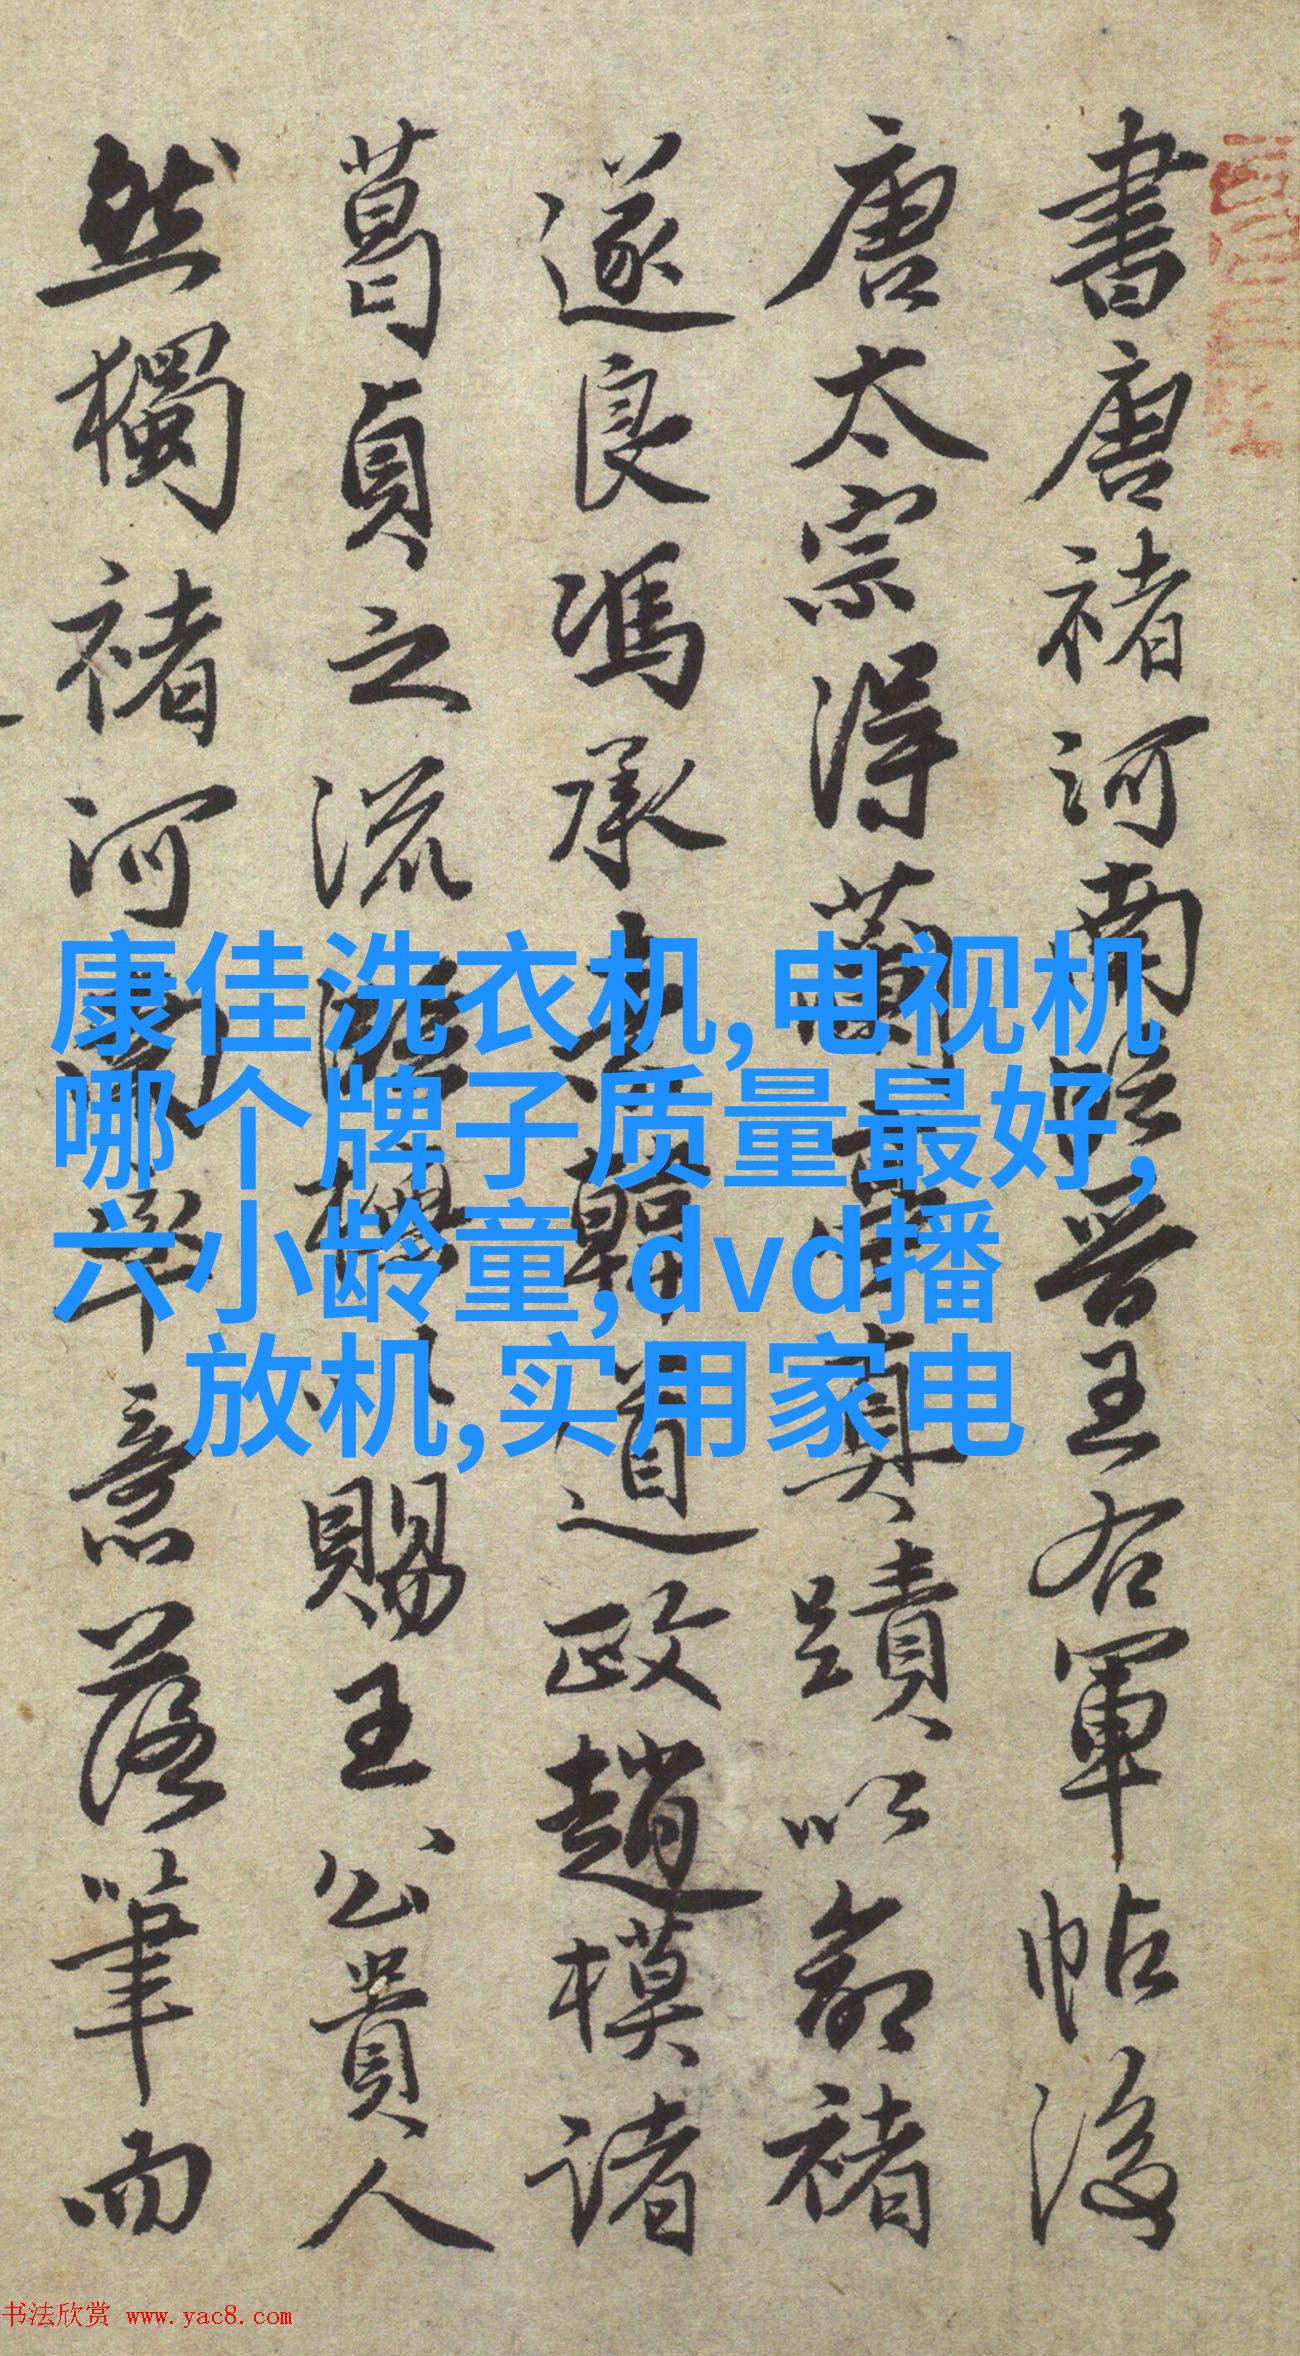 書唐褚河南臨晉王右軍帖後
唐太宗得蘭亭真蹟以命褚
遂良馮承素韓道政趙模諸
葛貞之流臨搨以賜王公貴人
然獨褚河南率意落筆而
康佳洗衣机,电视机
哪个牌子质量最好,
六小龄童,dvd播
放机,实用家电
书法欣赏 www.yac8.com